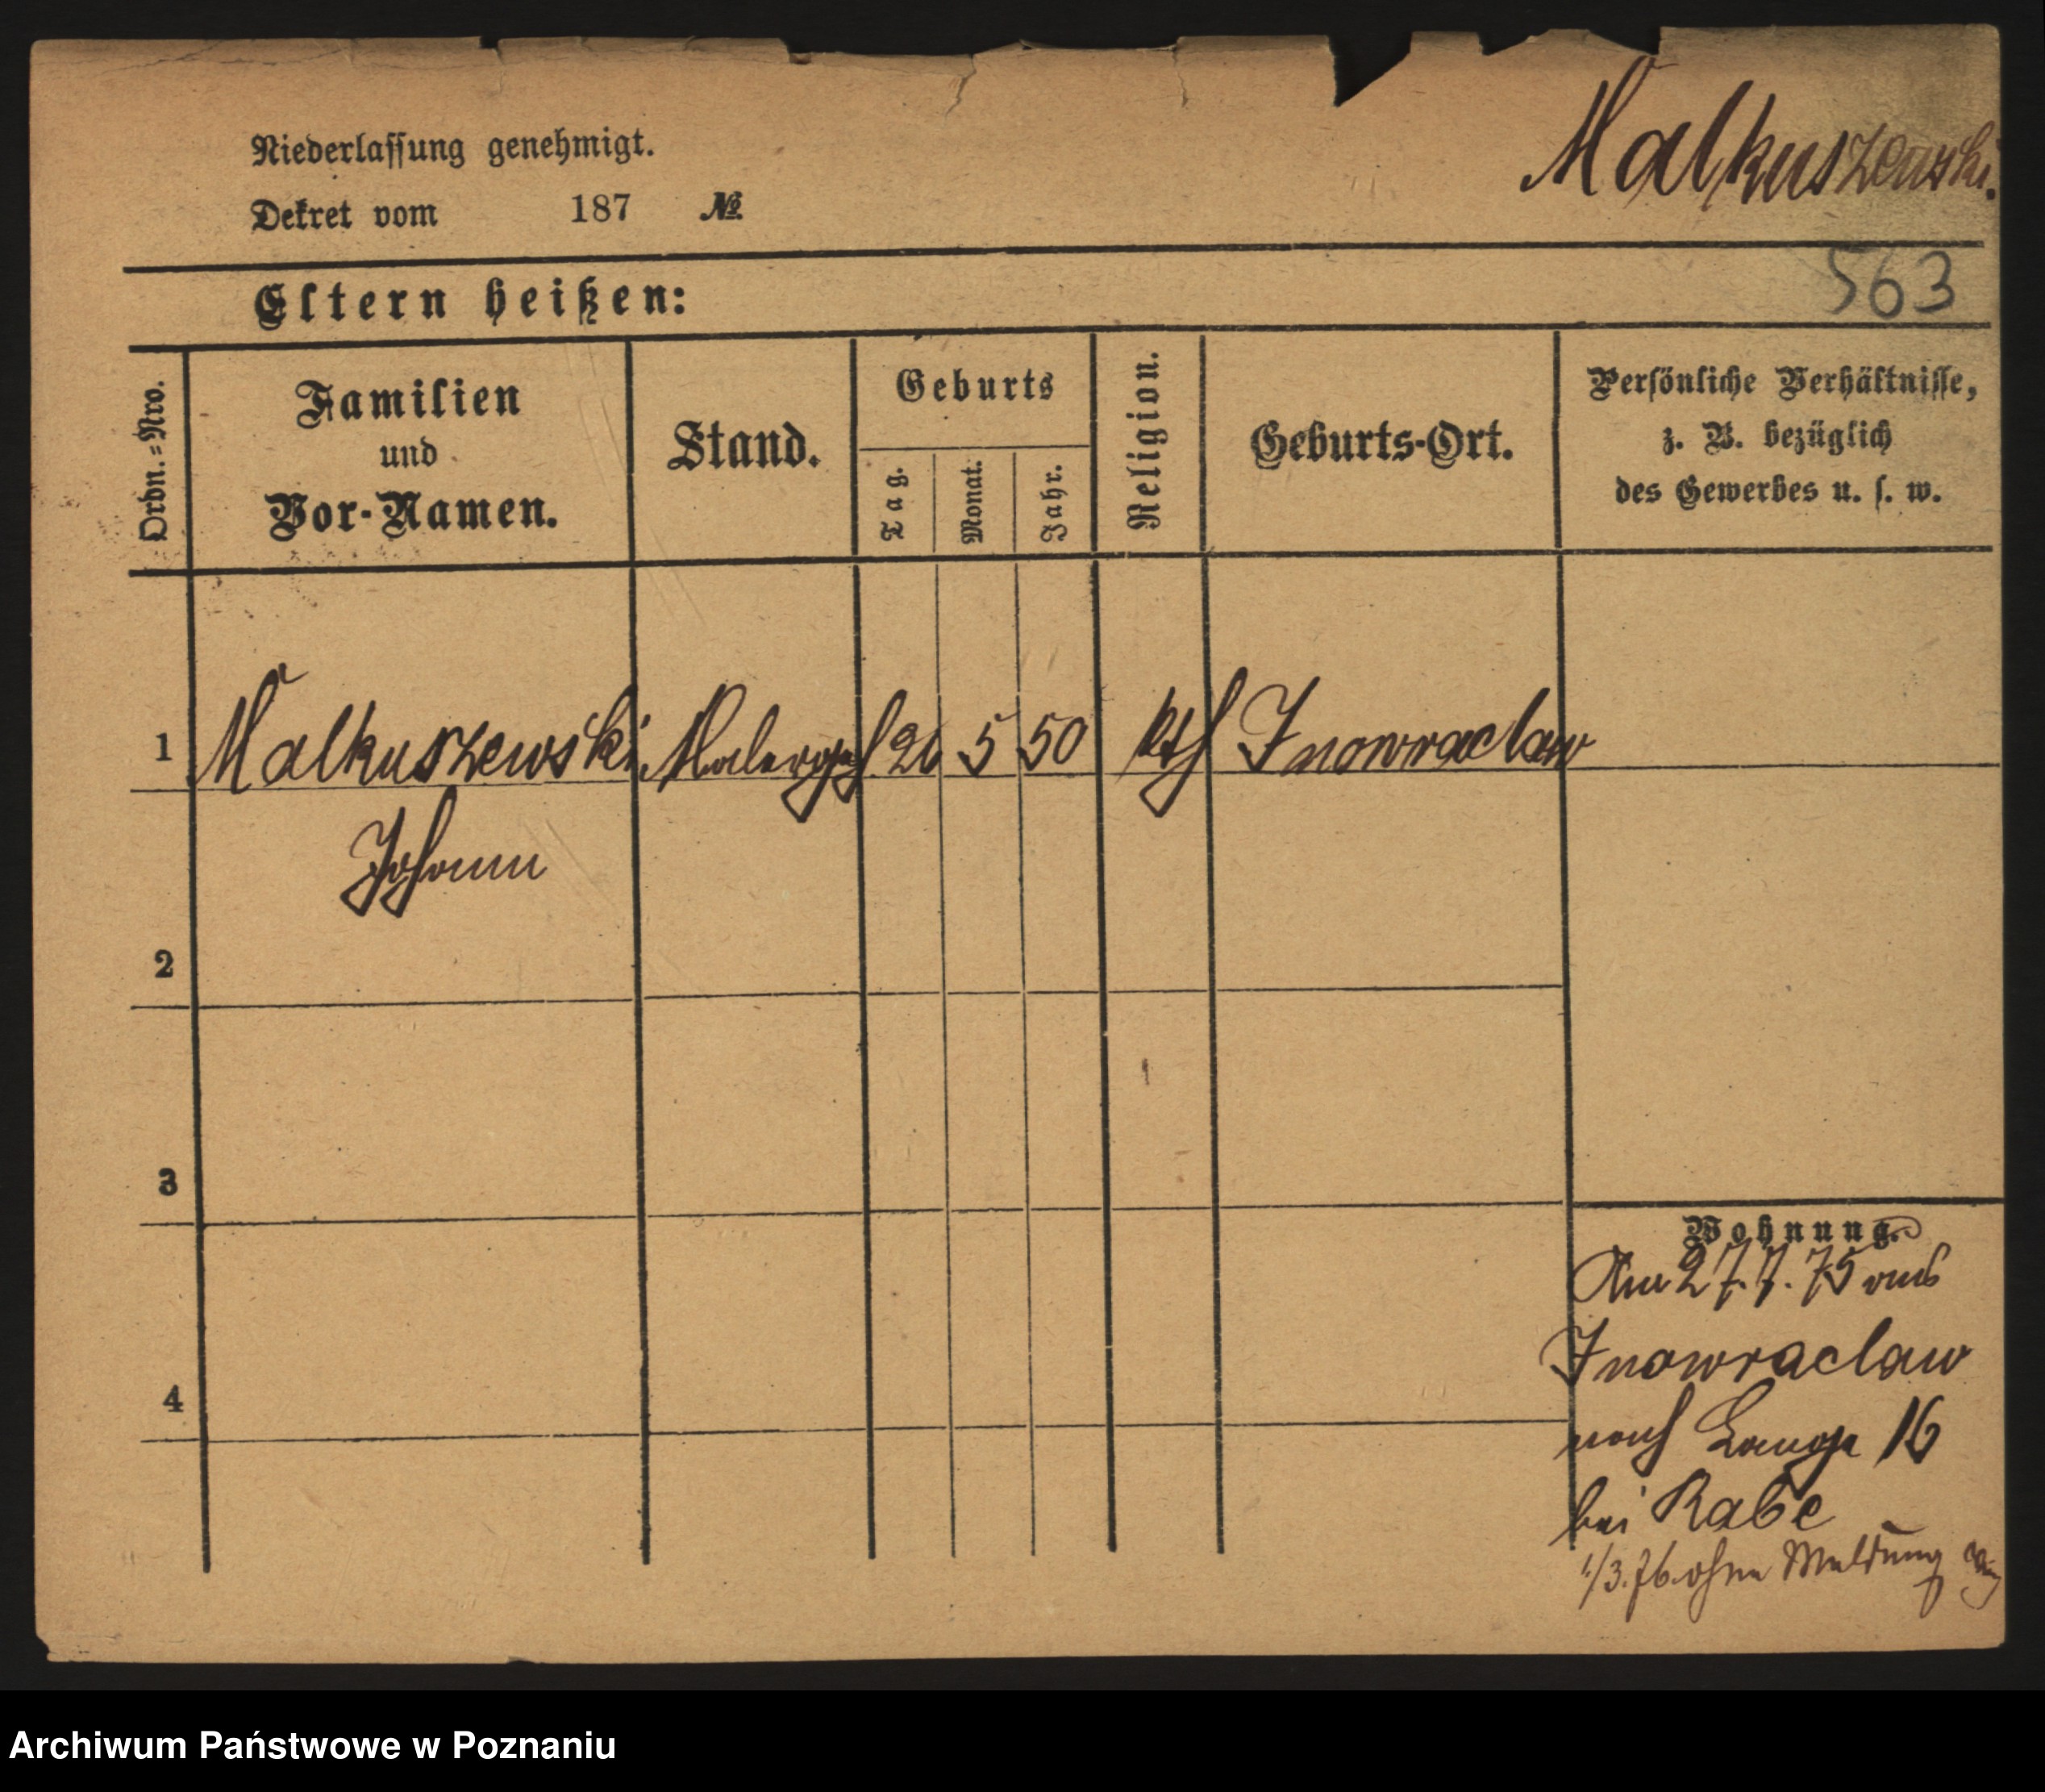 Malkuszewski.
Niederlassung genehmigt.
Dekret vom 187 №
563
Eltern heißen:
Ordn.-Nro.
Familien
und
Vor-Namen.
Stand.
Geburts
Tag.
Monat.
Jahr.
Religion.
Geburts-Ort.
Persönliche Verhältnisse,
z. B. bezüglich
des Gewerbes u. s. w.
1 Malkuszewski Malergeh 26 5 50 kth Inowraclaw
Johann
2
3
4
Wohnung.
Am 27.7.75 aus
Inowraclaw
nach Lange 16
bei Rabe
1/3.76 ohne Meldung
Archiwum Państwowe w Poznaniu